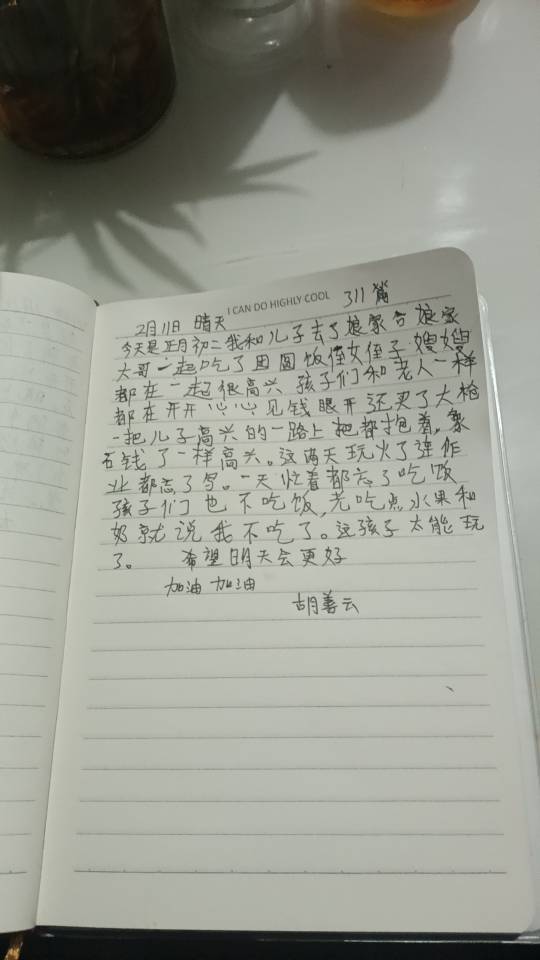 I CAN DO HIGHLY COOL 311篇
2月11日 晴天
今天是正月初二我和儿子去了娘家合娘家
大哥一起吃了团圆饭侄女侄子嫂嫂
都在一起很高兴 孩子们和老人一样
都在开开心心见钱眼开还买了大枪
一把儿子高兴的一路上把都抱着,象
石钱了一样高兴。这两天玩火了连作
业都忘了写。一天忙着都忘了吃饭
孩子们也不吃饭,光吃点水果和
奶就说我不吃了。这孩子太能玩
了。 希望明天会更好
加油 加油
胡善云